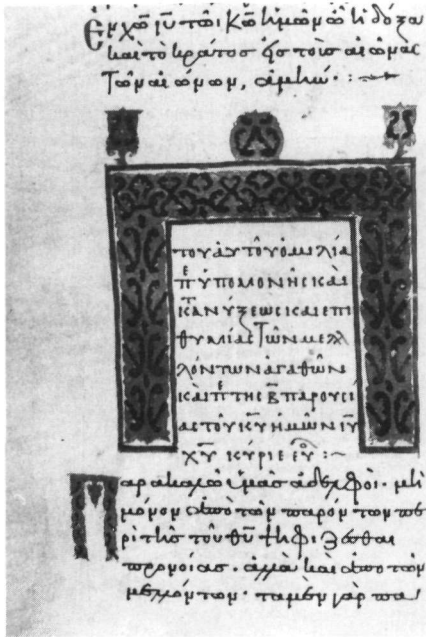 Ἐν χῶ ιῦ τῶι κῶ ἡμῶν ὧ ἡ δόξα
καὶ τὸ κράτος εἰς τοὺς αἰῶνας
τῶν αἰώνων, ἀμήν.
ΤΟΥ ΑΥΤΟΥ ΟΜΙΛΙΑ
ΠΕ ΥΠΟΜΟΝΗΣ ΚΑΙ
ΚΑΤΑΝΥΞΕΩΣ ΚΑΙ ΕΠΙ
ΘΥΜΙΑΣ ΤΩΝ ΜΕΛ
ΛΟΝΤΩΝ ΑΓΑΘΩΝ
ΚΑΙ ΠΕ ΤΗΣ Β ΠΑΡΟΥΣΙ
ΑΣ ΤΟΥ ΚΥ ΗΜΩΝ ΙΥ
ΧΥ ΚΥΡΙΕ ΕΥ :~
Παρακαλῶ ὑμᾶς ἀδελφοί· μὴ
μόνον ἀπὸ τῶν παρόντων πε
ρὶ τῆς τοῦ θῦ πεφίζεσθαι
προνοίας· ἀλλὰ καὶ ἀπὸ τῶν
μελλόντων· τὰ μὲν γὰρ πα